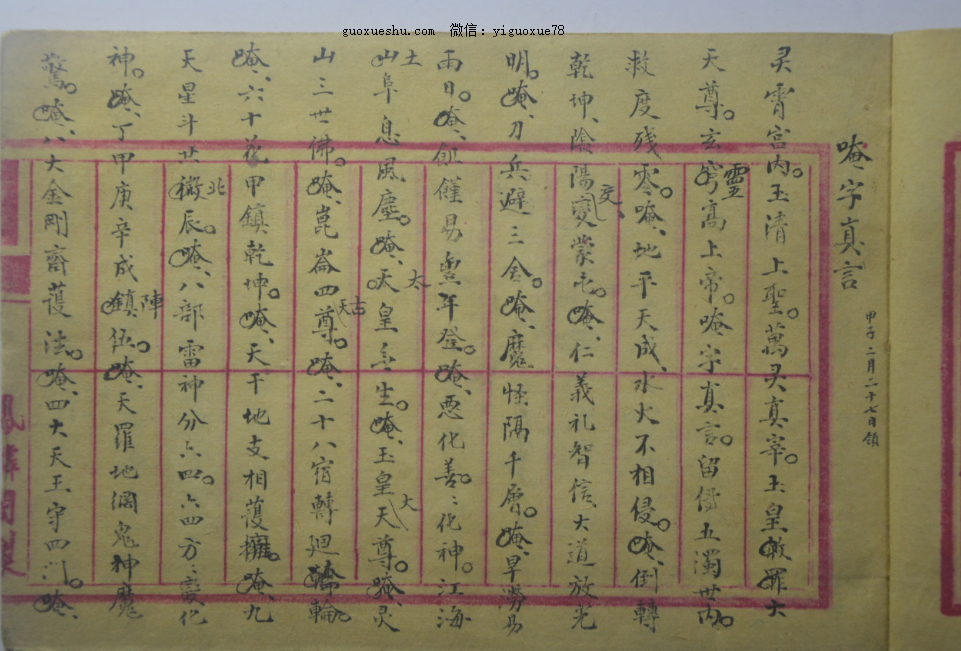 guoxueshu.com 微信: yiguoxue78
唵字真言
甲子二月二十七日領
灵霄宫内。玉清上聖。萬灵真宰。玉皇赦罪大
天尊。玄穹高上帝。唵字真言。留傳五濁世内。
靈
救度残零。唵、地平天成、水火不相侵。唵、倒轉
乾坤、陰陽變蒙屯。唵、仁義礼智信、大道放光
交
明。唵、刀兵避三舍。唵、魔怪隔千層。唵、旱澇易
雨日。唵、飢饉易豊年登。唵、悪化善。善化神。江海
山阜息風塵。唵、天皇無生。唵、玉皇天尊。唵、灵
土
太
大
山三世佛。唵、崑崙四尊。唵、二十八宿轉廻輪。
古天
唵、六十花甲鎮乾坤。唵、天干地支相護擁。唵、九
天星斗共辰。唵、八部雷神分六四。六四方方变化
北
神。唵、丁甲庚辛成鎮伍。唵、天羅地網鬼神魔
陣
驚。唵、八大金剛齊護法。唵、四大天王守四门。唵、